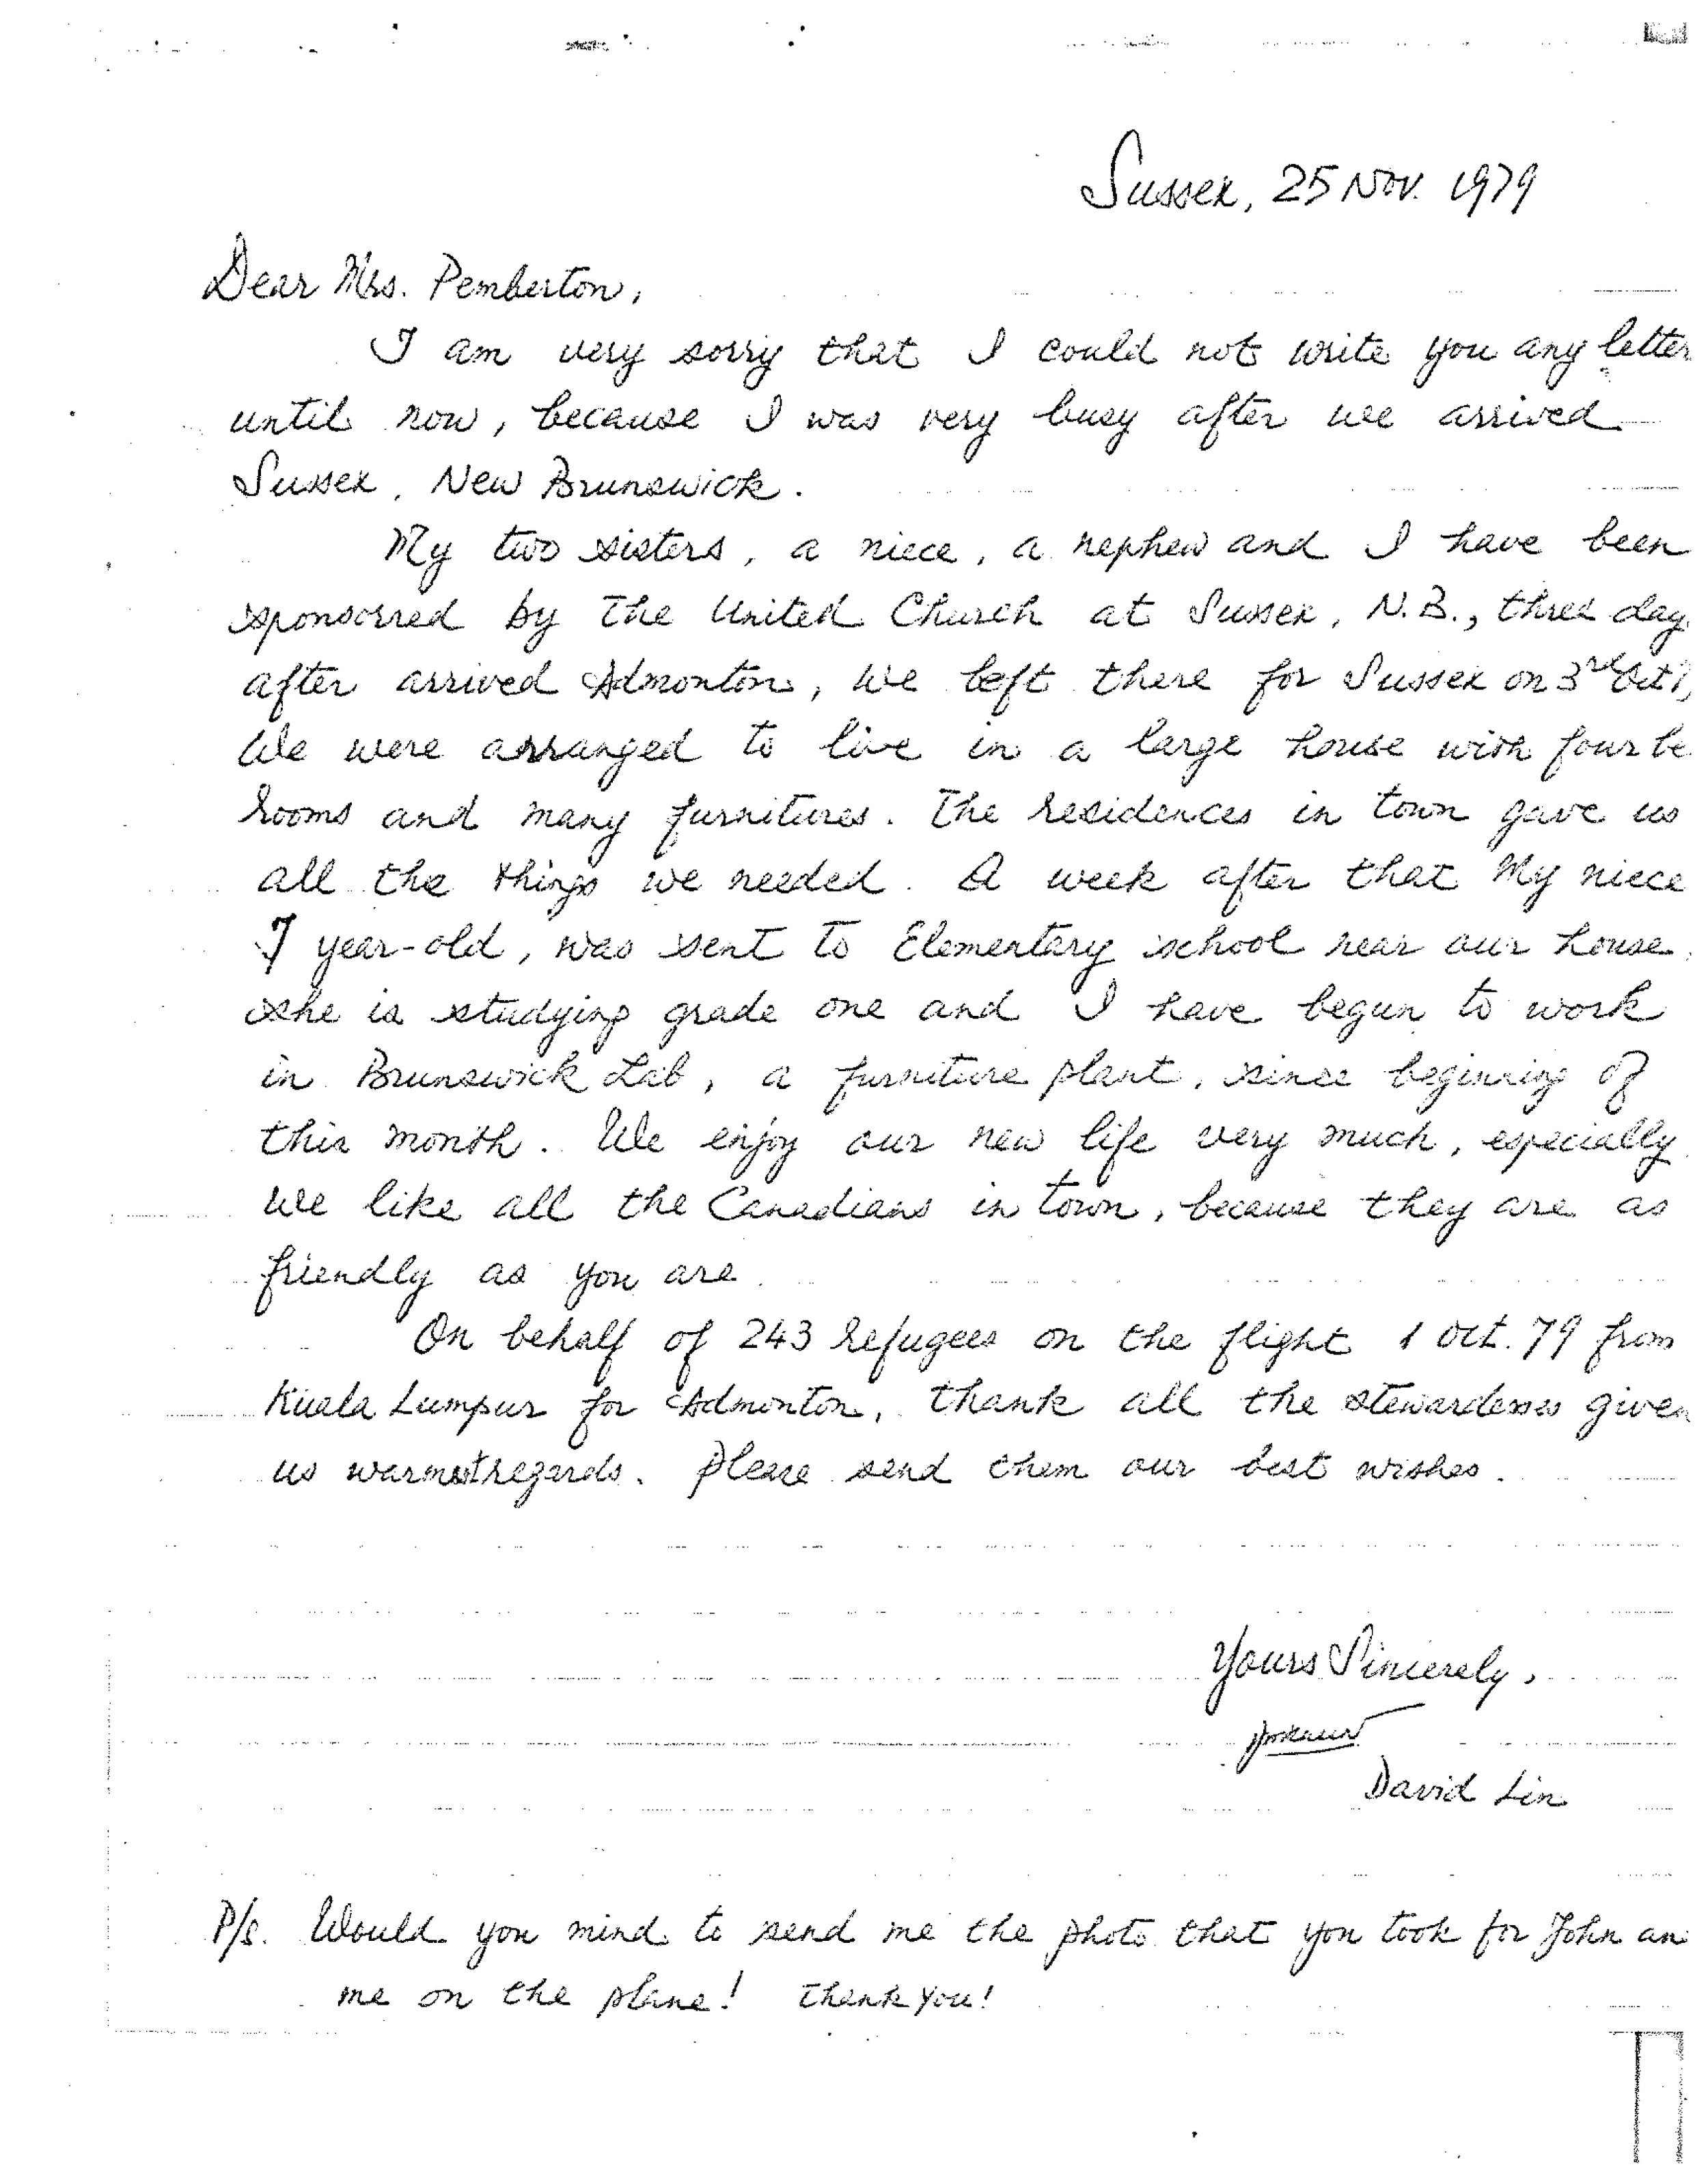 Sussex, 25 Nov. 1979
Dear Mrs. Pemberton,
I am very sorry that I could not write you any letter
until now, because I was very busy after we arrived
Sussex, New Brunswick.
My two sisters, a niece, a nephew and I have been
sponsorred by The United Church at Sussex, N.B., three day
after arrived Admonton, we left there for Sussex on 3rd Oct
We were arranged to live in a large house with four be
rooms and many furnitures. The residences in town gave us
all the things we needed. A week after that My niece
7 year-old, was sent to Elementary school near our house.
she is studying grade one and I have begun to work
in Brunswick Lab, a furniture plant, since beginning of
this month. We enjoy our new life very much, especially
we like all the Canadians in town, because they are as
friendly as you are.
On behalf of 243 refugees on the flight 1 Oct. 79 from
Kuala Lumpur for Admonton, thank all the stewardesses given
us warmest regards. Please send them our best wishes.
Yours Sincerely,
David Lin
P/s. Would you mind to send me the photo that you took for John an
me on the plane! Thank you!